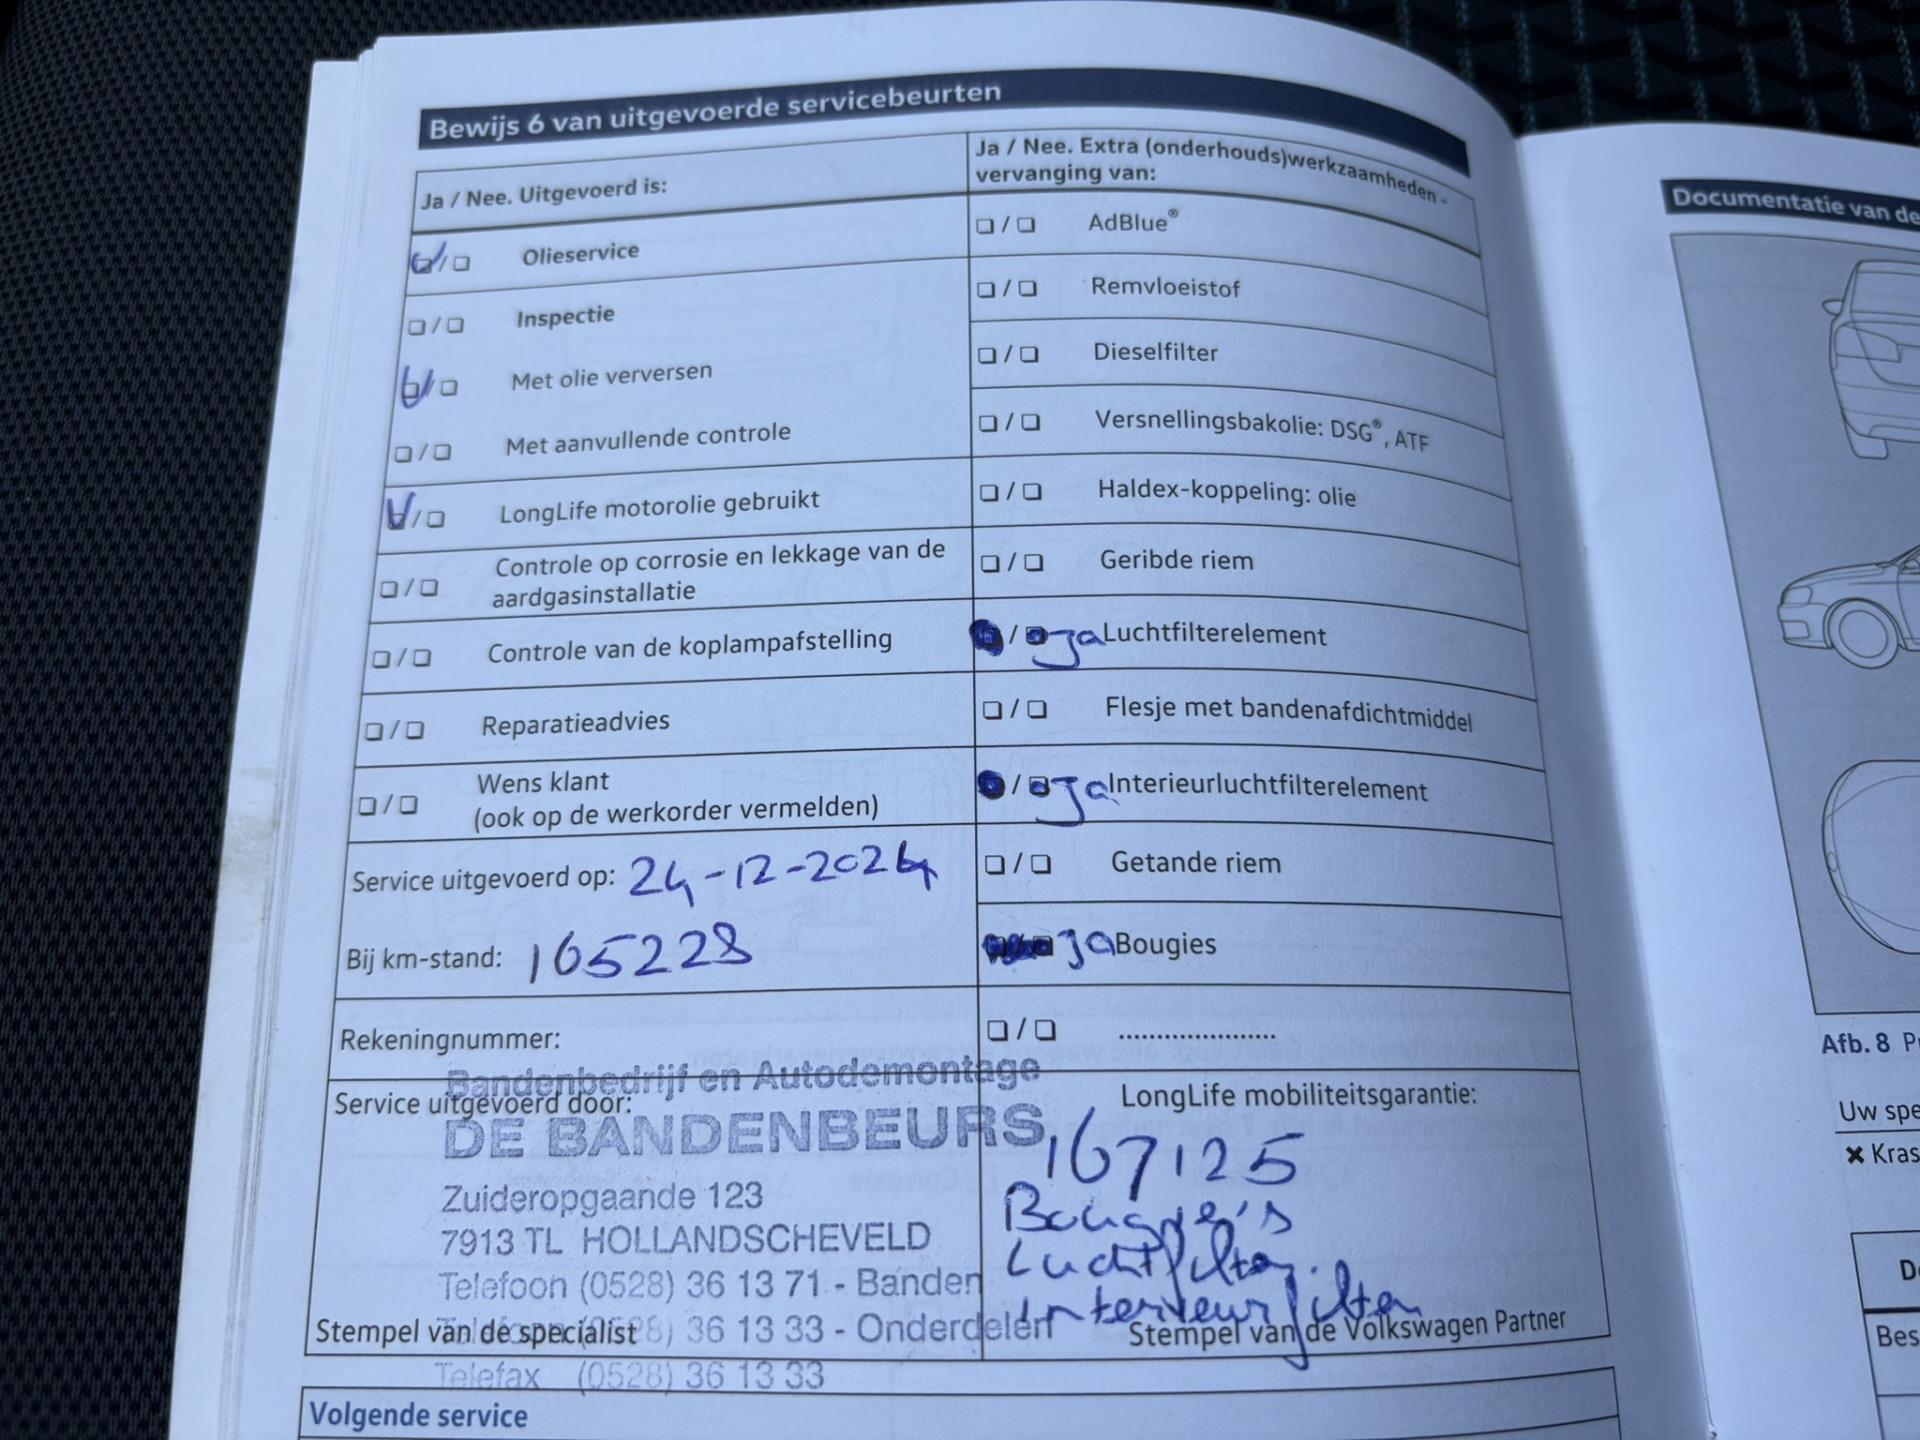 Bewijs 6 van uitgevoerde servicebeurten
Ja / Nee. Uitgevoerd is:
Olieservice
Inspectie
Met olie verversen
Met aanvullende controle
LongLife motorolie gebruikt
Controle op corrosie en lekkage van de
aardgasinstallatie
Controle van de koplampafstelling
Reparatieadvies
Wens klant
(ook op de werkorder vermelden)
Service uitgevoerd op: 24-12-2024
Bij km-stand: 165228
Rekeningnummer:
Service uitgevoerd door:
Bandenbedrijf en Autodemontage
DE BANDENBEURS
Zuideropgaande 123
7913 TL HOLLANDSCHEVELD
Telefoon (0528) 36 13 71 - Banden
Telefoon (0528) 36 13 33 - Onderdelen
Stempel van de specialist
Telefax (0528) 36 13 33
Ja / Nee. Extra (onderhouds)werkzaamheden -
vervanging van:
AdBlue®
Remvloeistof
Dieselfilter
Versnellingsbakolie: DSG®, ATF
Haldex-koppeling: olie
Geribde riem
ja Luchtfilterelement
Flesje met bandenafdichtmiddel
ja Interieurluchtfilterelement
Getande riem
ja Bougies
.....................
LongLife mobiliteitsgarantie:
167125
Bougie's
Luchtfilter
Interieurfilter
Stempel van de Volkswagen Partner
Volgende service
Documentatie van de
Afb. 8
Uw spe
✖ Kras
Bes